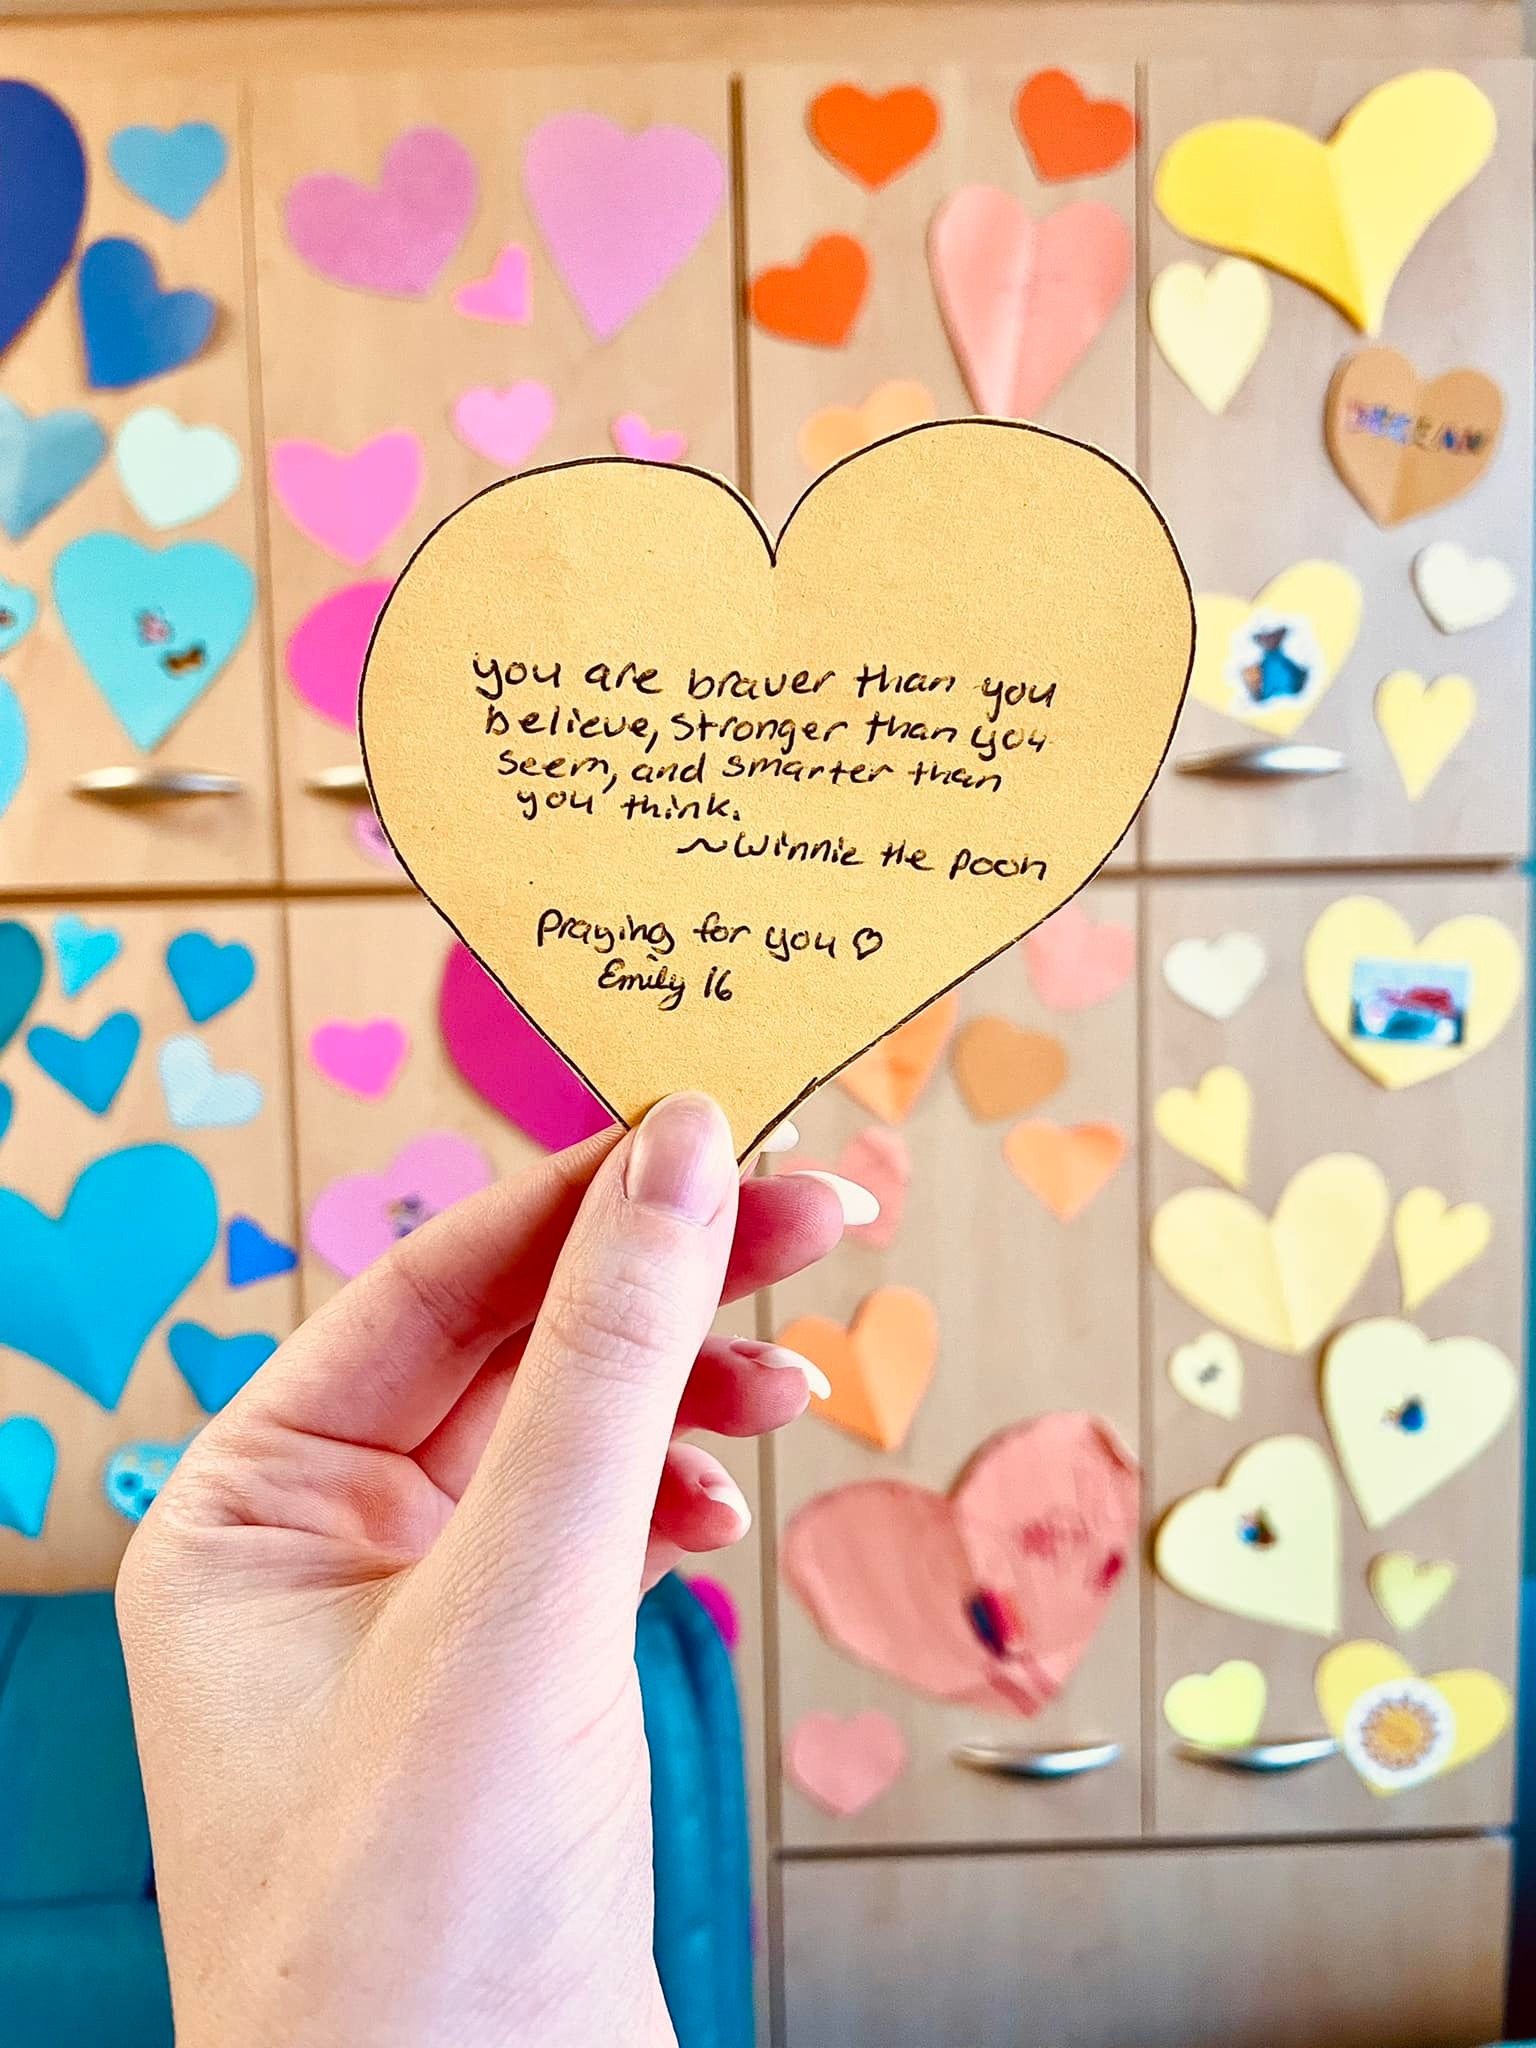 you are braver than you
believe, stronger than you
seem, and smarter than
you think.
~Winnie the Pooh
Praying for you ♡
Emily 16